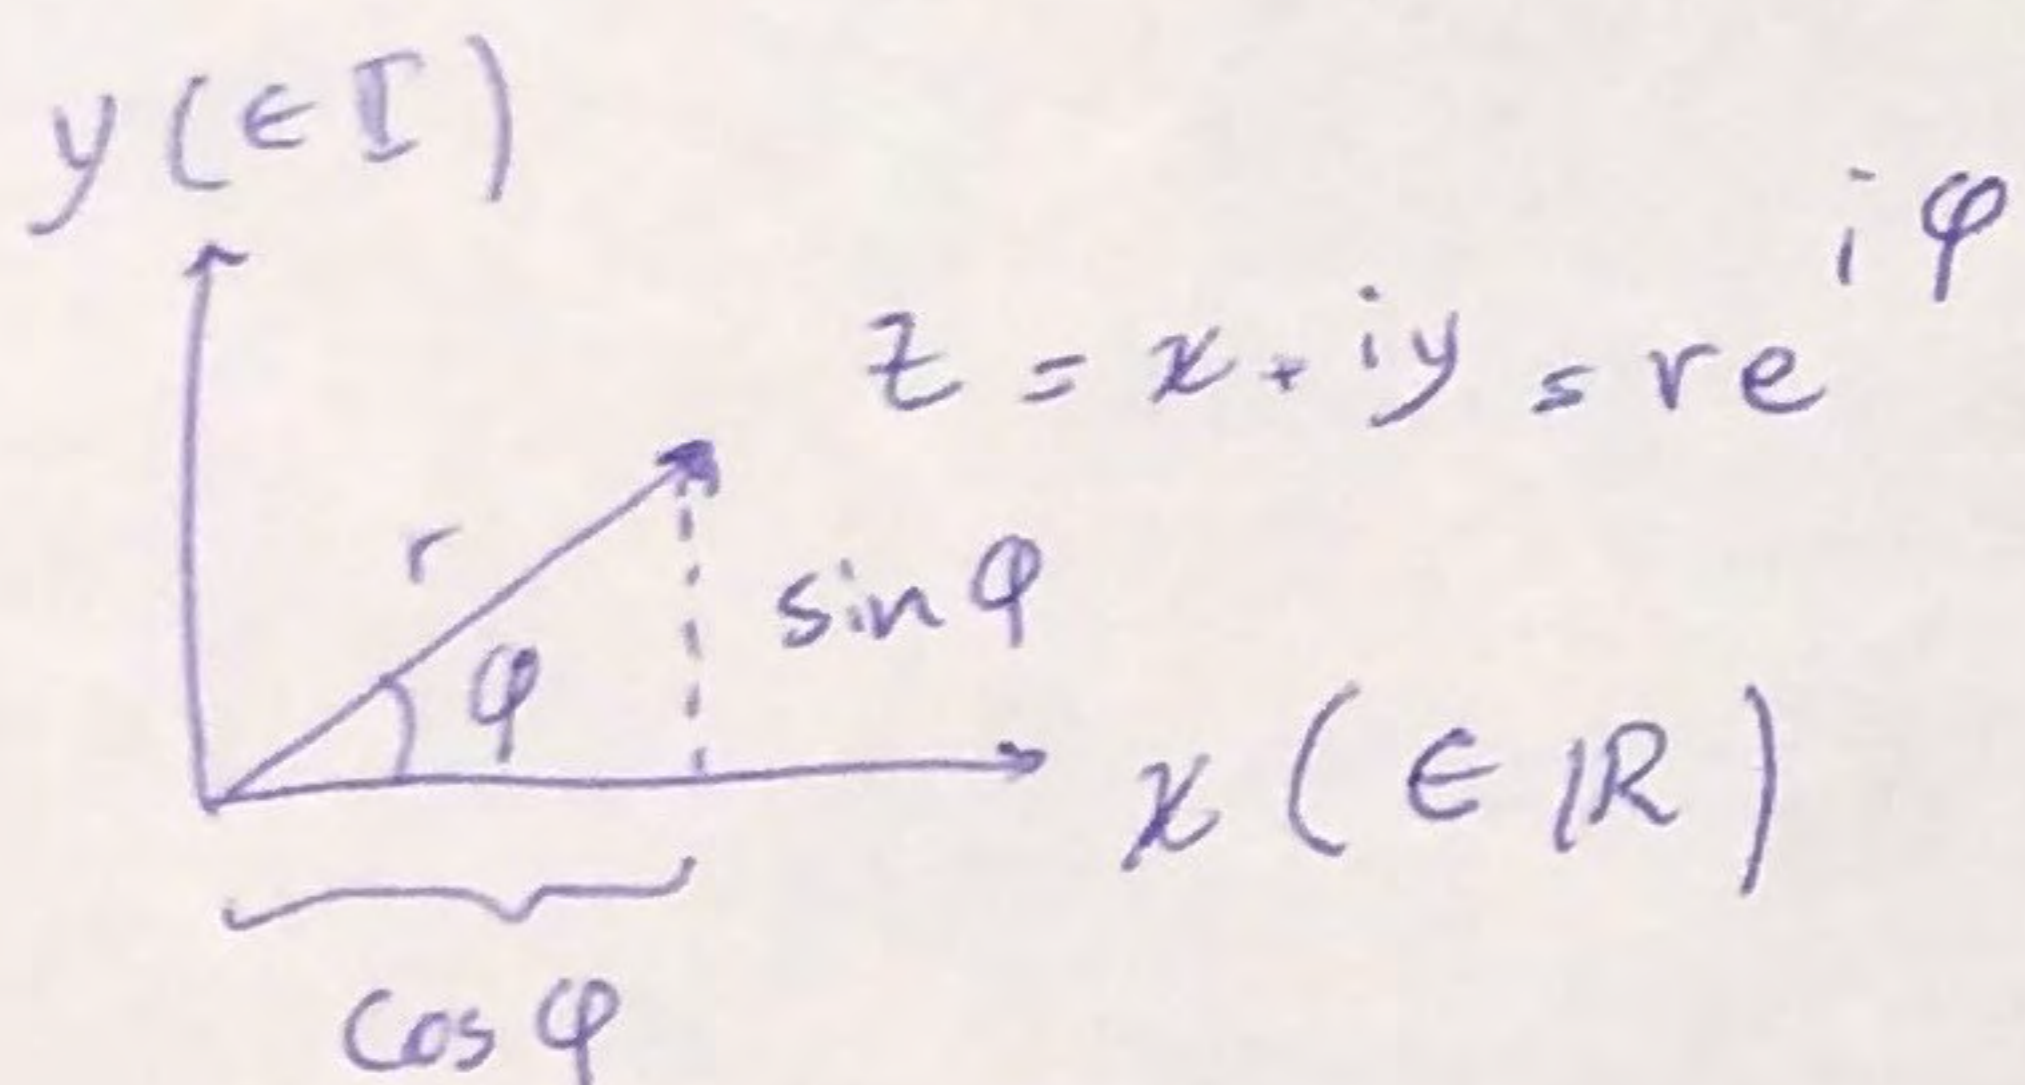 y (∈ I)
z = x + iy = re^{iφ}
r
sin φ
φ
x (∈ ℝ)
cos φ